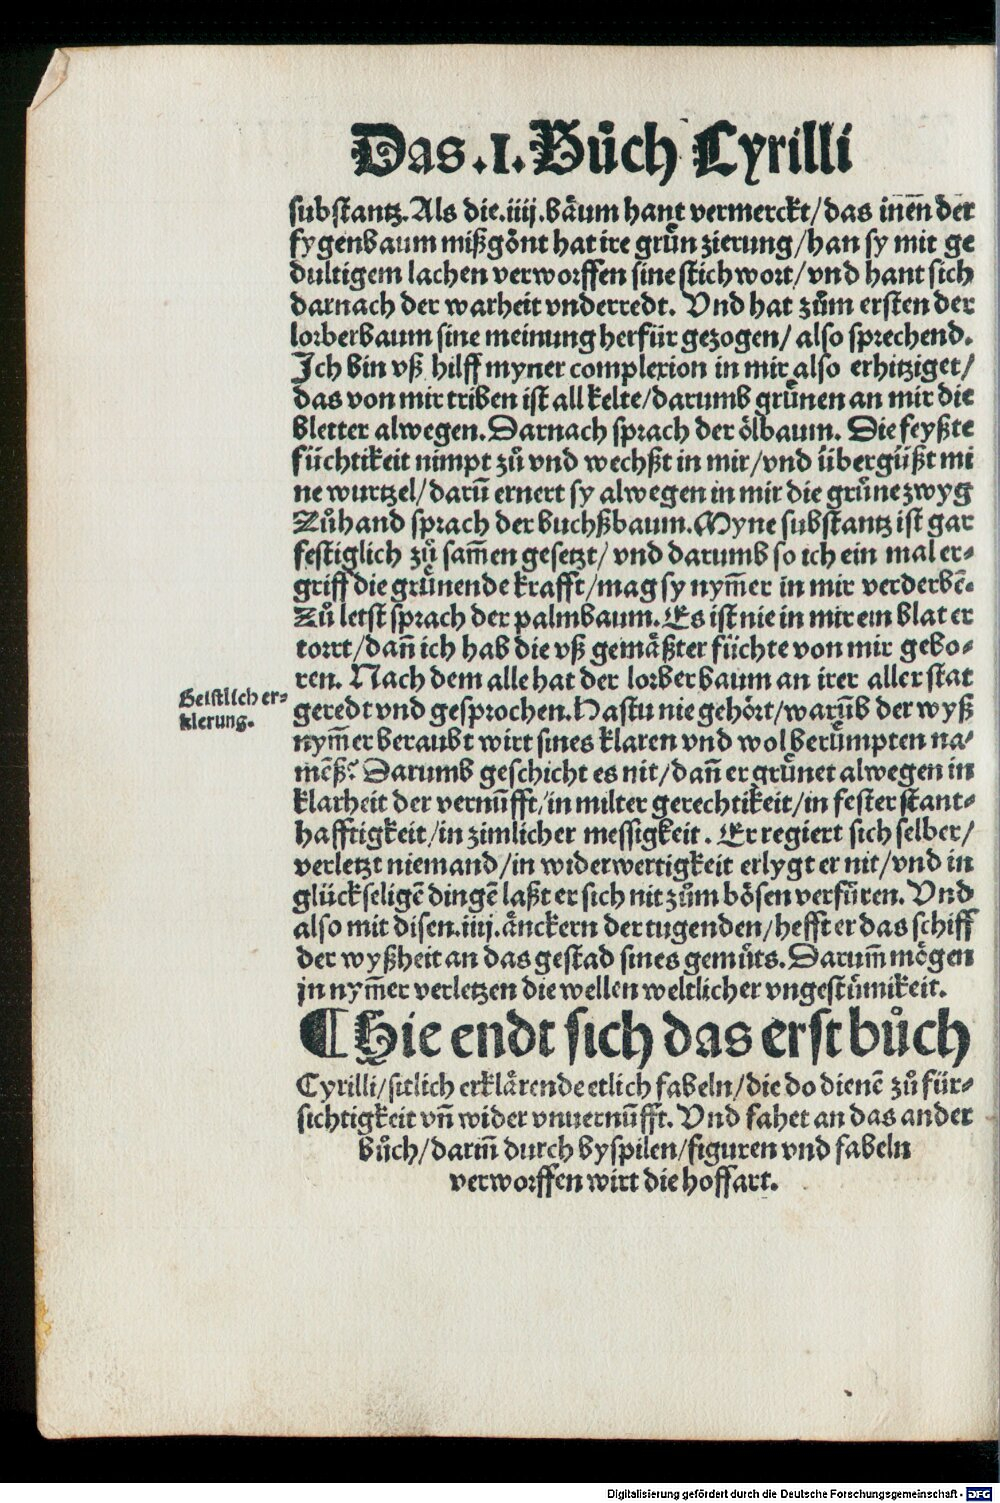 Das .I. Bůch Cyrilli
substantz. Als die .iiij. bäum hant vermerckt/ das inen̄ der
fygenbaum mißgönt hat ire grün zierung/ han sy mit ge
dultigem lachen verworffen sine stichwort/ vnd hant sich
darnach der warheit vnderredt. Vnd hat zům ersten der
lorberbaum sine meinung herfür gezogen/ also sprechend.
Ich bin vß hilff myner complexion in mir also erhitziget/
das von mir triben ist all kelte/ darumb grůnen an mir die
bletter alwegen. Darnach sprach der ölbaum. Die feyßte
füchtikeit nimpt zů vnd wechßt in mir/ vnd übergüßt mi
ne wurtzel/ darū ernert sy alwegen in mir die grůne zwyg
Zůhand sprach der buchßbaum. Myne substantz ist gar
festiglich zů sam̄en gesetzt/ vnd darumb so ich ein mal er⸗
griff die grůnende krafft/ mag sy nym̄er in mir verderbē.
Zů letst sprach der palmbaum. Es ist nie in mir ein blat er
torrt/ dan̄ ich hab die vß gemäßter füchte von mir gebo⸗
ren. Nach dem alle hat der lorberbaum an irer aller stat
Geistlich er⸗
klerung.
geredt vnd gesprochen. Hastu nie gehört/ warūb der wyß
nym̄er beraubt wirt sines klaren vnd wol berůmpten na⸗
mēß? Darumb geschicht es nit/ dan̄ er grůnet alwegen in
klarheit der vernūfft/ in milter gerechtikeit/ in fester stant⸗
hafftigkeit/ in zimlicher messigkeit. Er regiert sich selber/
verletzt niemand/ in widerwertigkeit erlygt er nit/ vnd in
glückseligē dingē laßt er sich nit zům bösen verfůren. Vnd
also mit disen .iiij. änckern der tugenden/ hefft er das schiff
der wyßheit an das gestad sines gemůts. Darum̄ mögen
jn nym̄er verletzen die wellen weltlicher vngestůmikeit.
¶ Hie endt sich das erst bůch
Cyrilli/ sitlich erklärende etlich fabeln/ die do dienē zů für⸗
sichtigkeit vn̄ wider vnuernūfft. Vnd fahet an das ander
bůch/ darin̄ durch byspilen/ figuren vnd fabeln
verworffen wirt die hoffart.
Digitalisierung gefördert durch die Deutsche Forschungsgemeinschaft - DFG